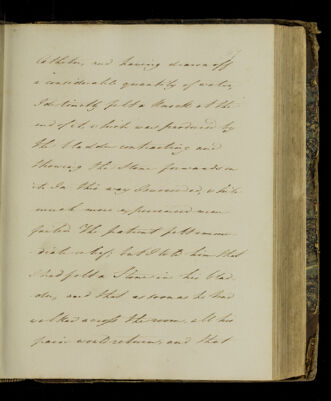 Catheter, and having drawn off
a considerable quantity of water,
I distinctly felt a knock at the
end of it, which was produced by
the bladder contracting and
throwing the Stone forwards on
it. In this way I succeeded, while
much more experienced men
failed. The patient felt imme
diate relief; but I told him that
I had felt a Stone in his blad
der, and that as soon as he had
walked across the room, all his
pain would return; and that